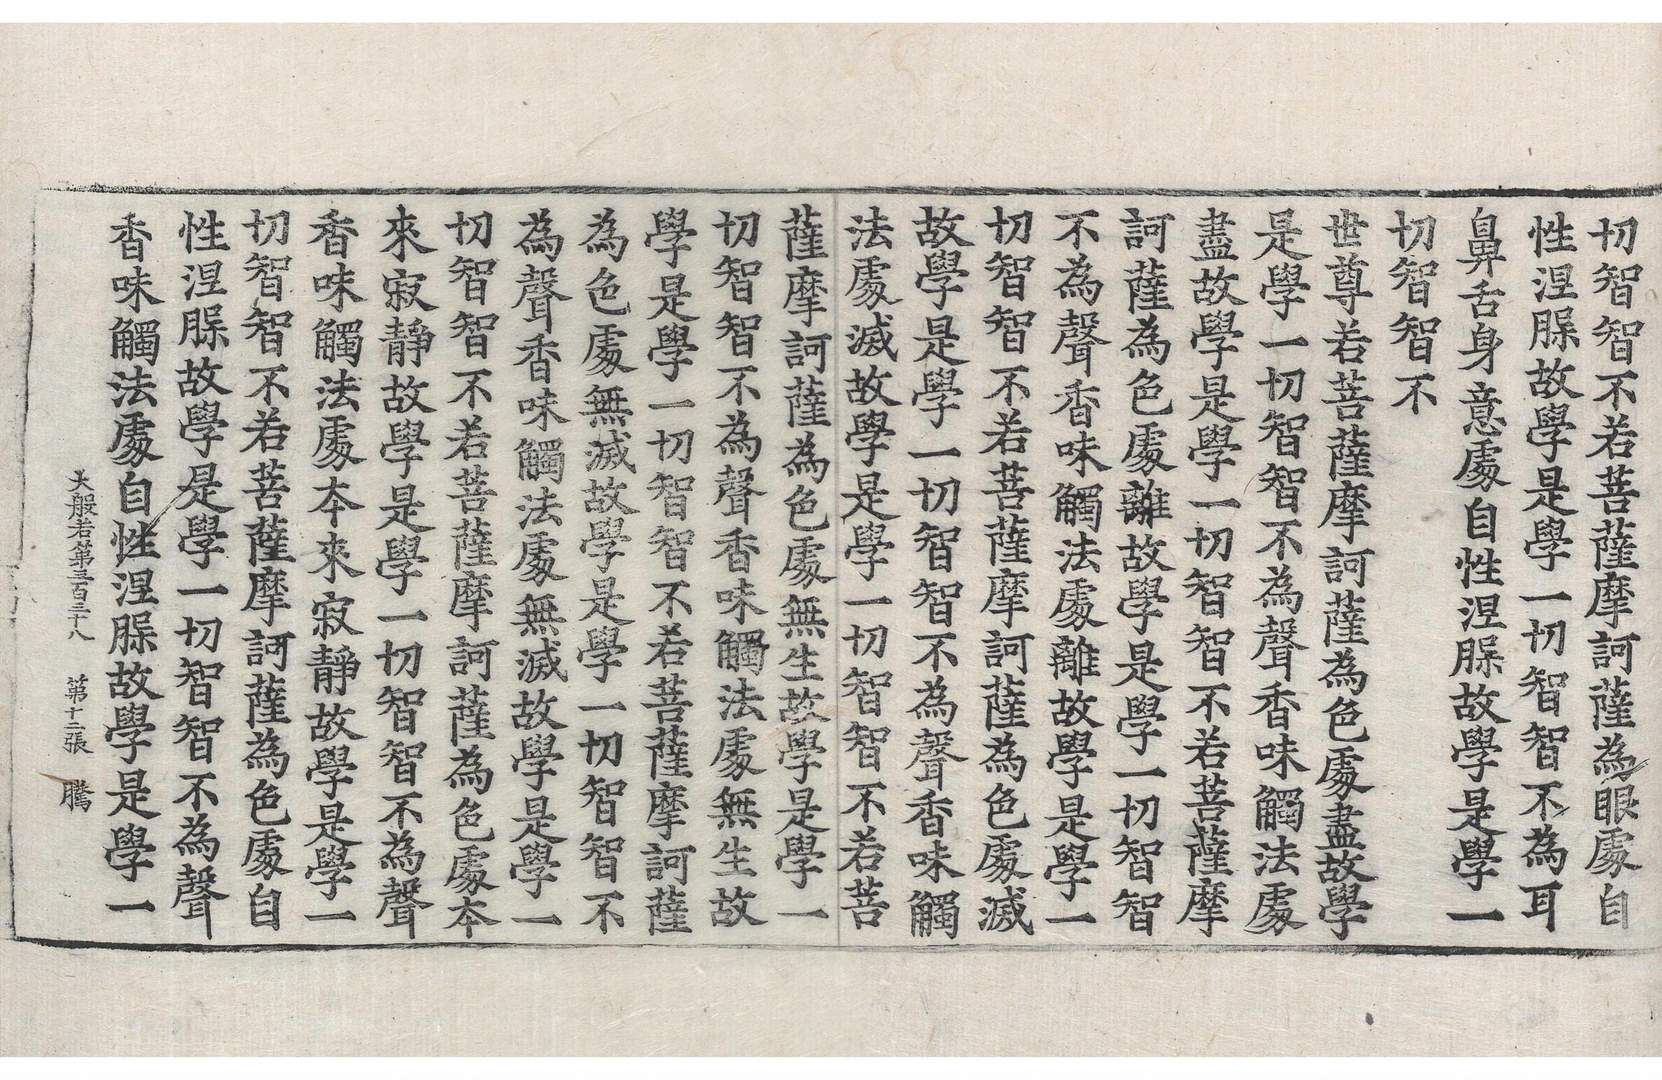 切智智不若菩薩摩訶薩為眼處自
性涅槃故學是學一切智智不為耳
鼻舌身意處自性涅槃故學是學一
切智智不
世尊若菩薩摩訶薩為色處盡故學
是學一切智智不為聲香味觸法處
盡故學是學一切智智不若菩薩摩
訶薩為色處離故學是學一切智智
不為聲香味觸法處離故學是學一
切智智不若菩薩摩訶薩為色處滅
故學是學一切智智不為聲香味觸
法處滅故學是學一切智智不若菩
薩摩訶薩為色處無生故學是學一
切智智不為聲香味觸法處無生故
學是學一切智智不若菩薩摩訶薩
為色處無滅故學是學一切智智不
為聲香味觸法處無滅故學是學一
切智智不若菩薩摩訶薩為色處本
來寂靜故學是學一切智智不為聲
香味觸法處本來寂靜故學是學一
切智智不若菩薩摩訶薩為色處自
性涅槃故學是學一切智智不為聲
香味觸法處自性涅槃故學是學一
大般若第三百三十八 第十二張 騰